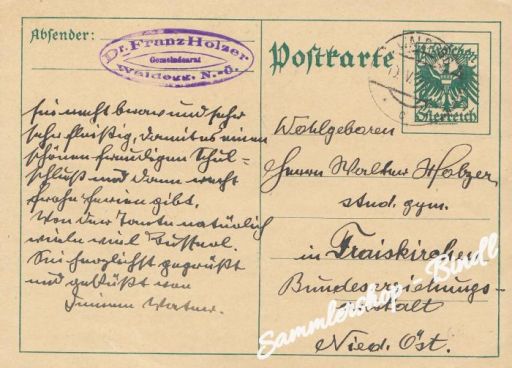 Absender:
Dr. Franz Holzer
Gemeindearzt
Waldegg, N.-Ö.
Postkarte
Österreich
Sei recht brav und sehr
sehr fleißig, damit es einen
schönen freudigen Schul-
schluß und dann recht
frohe Ferien gibt.
Von der Tante natürlich
viele viel Busserl.
Sei herzlichst gegrüßt
und geküßt von
Deinem Vater.
Wohlgeboren
Herrn Walter Holzer
stud. gym.
in Traiskirchen
Bundeserziehungs-
anstalt
Nied. Öst.
Sammlershop - Bindl